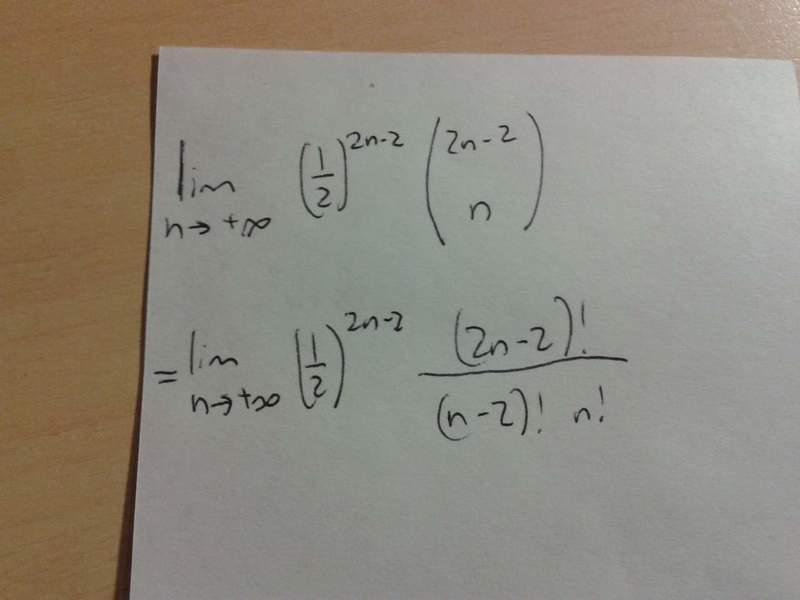 lim n→+∞ (1/2)^{2n-2} (2n-2 n)
= lim n→+∞ (1/2)^{2n-2} (2n-2)! / (n-2)! n!